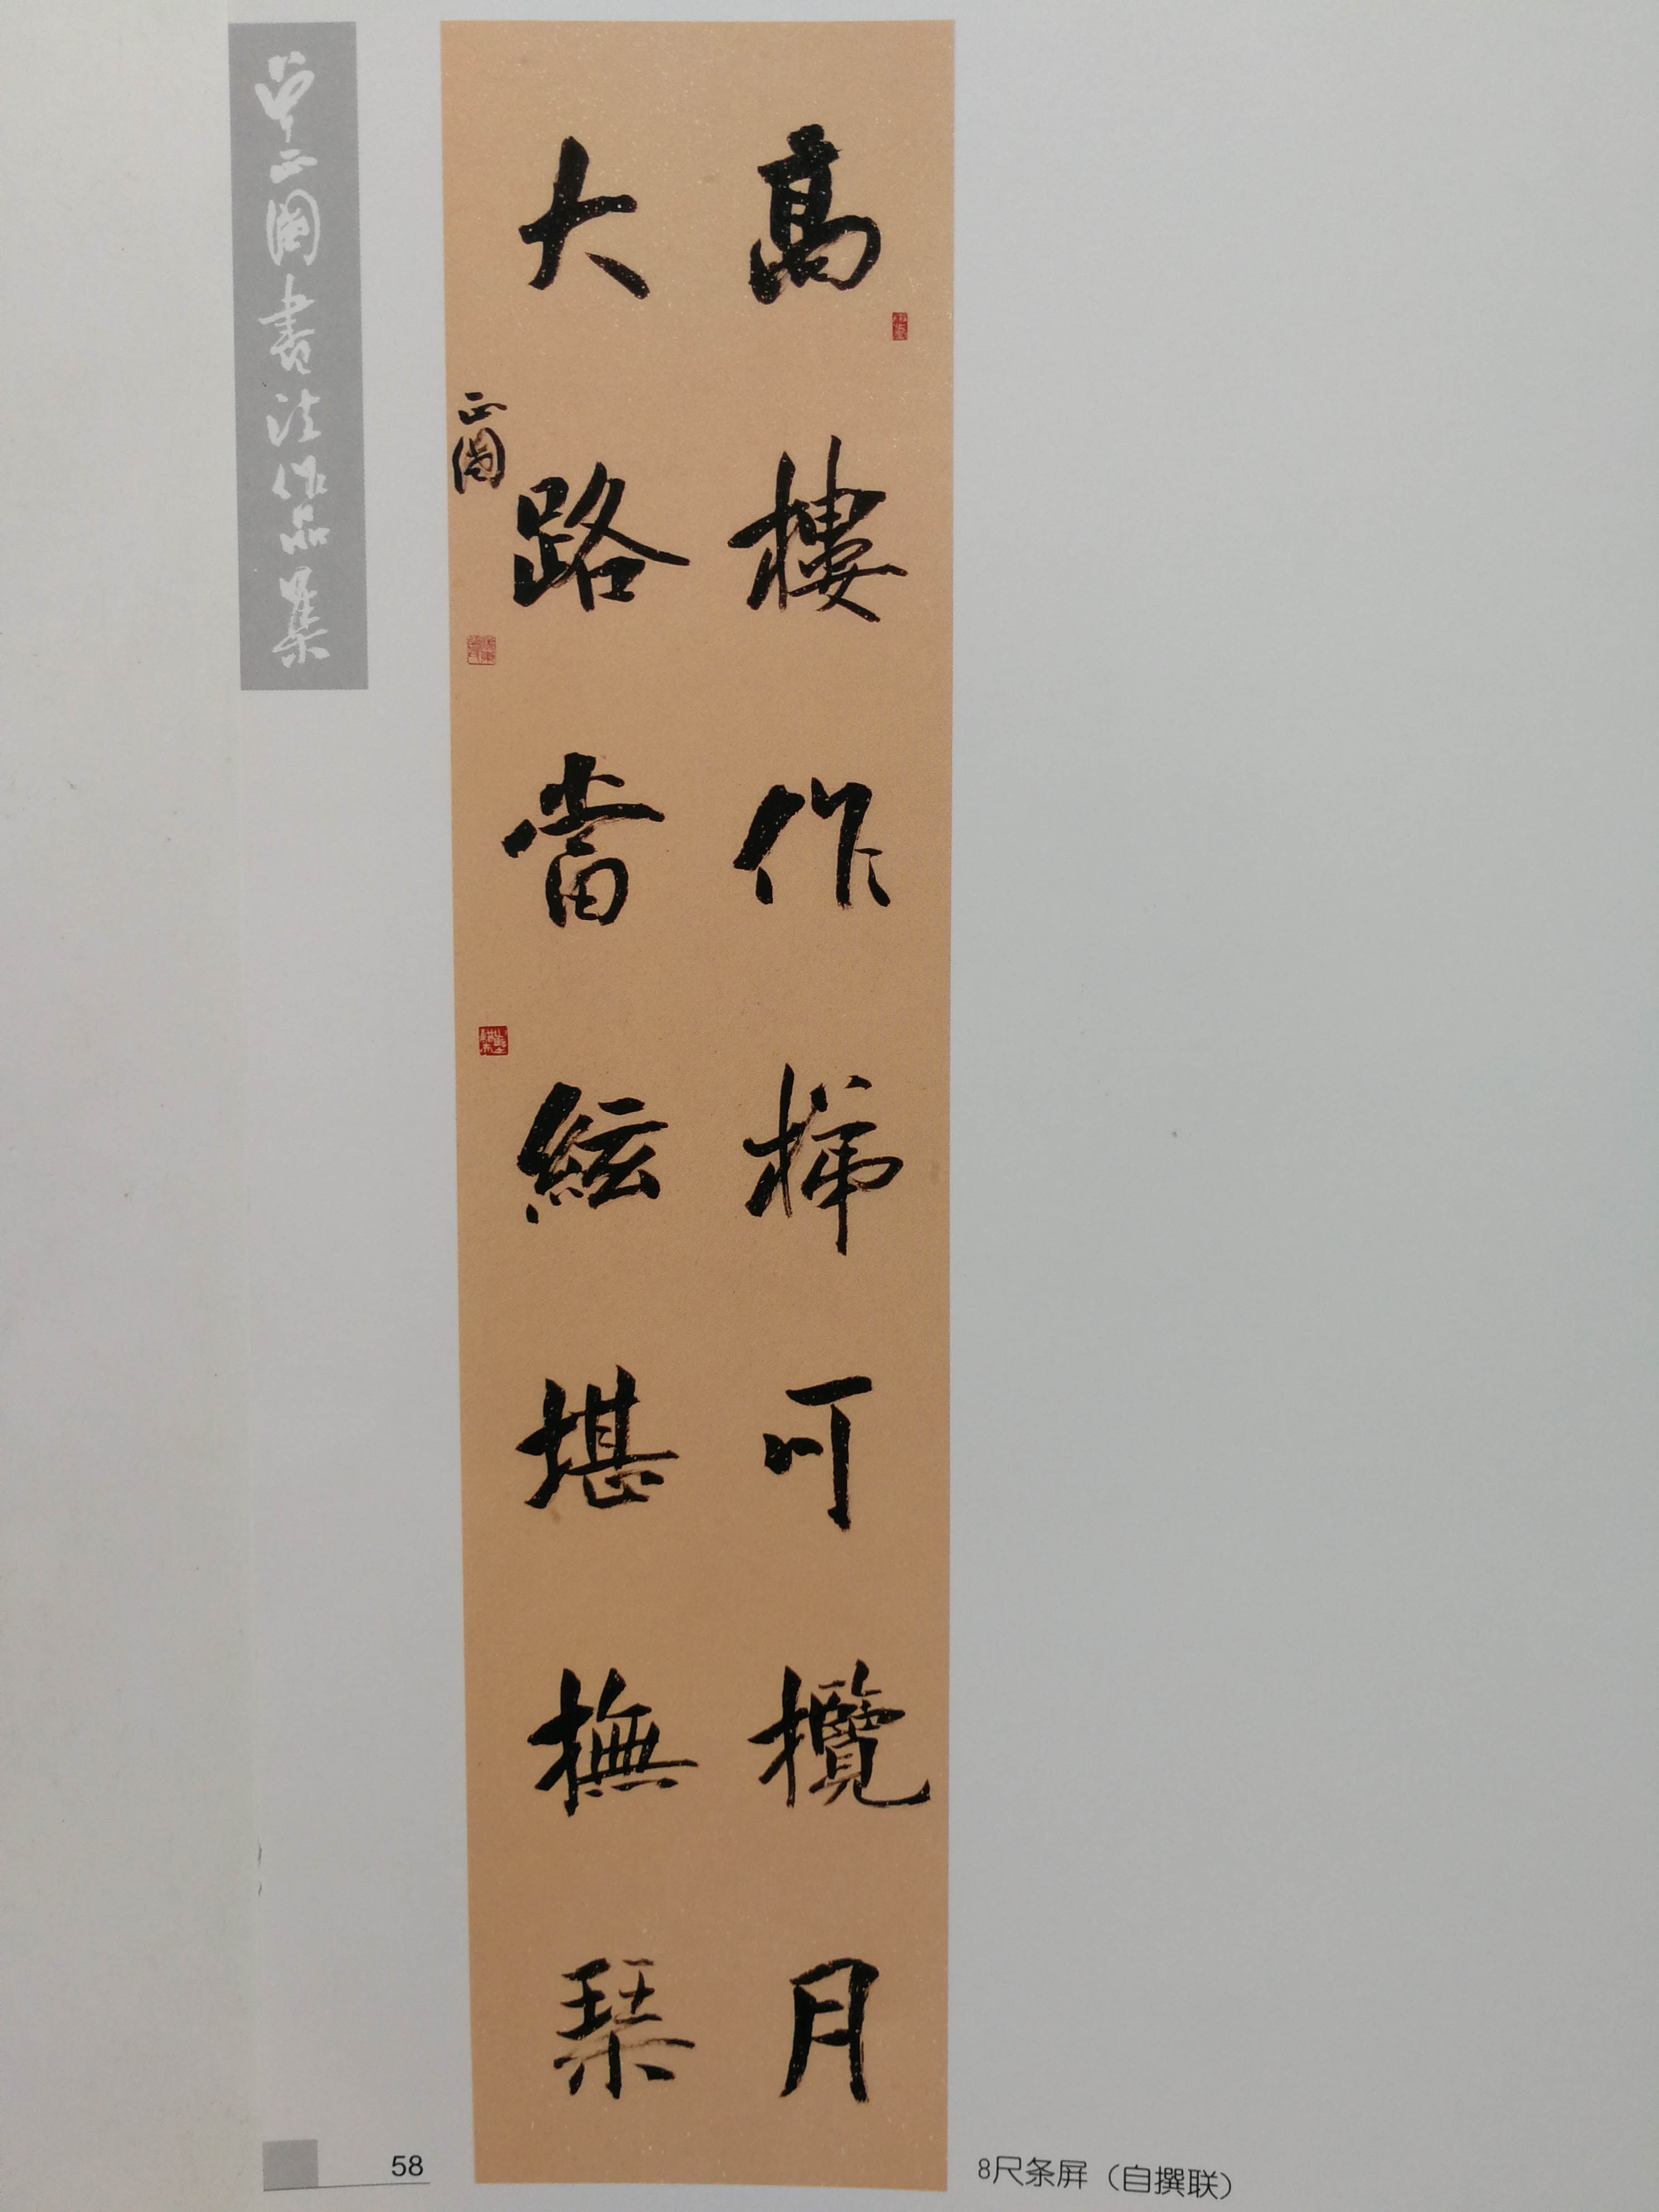 高樓作梯可攬月
大路當絃堪撫琹
正国
正国書法作品集
58
8尺条屏（自撰联）